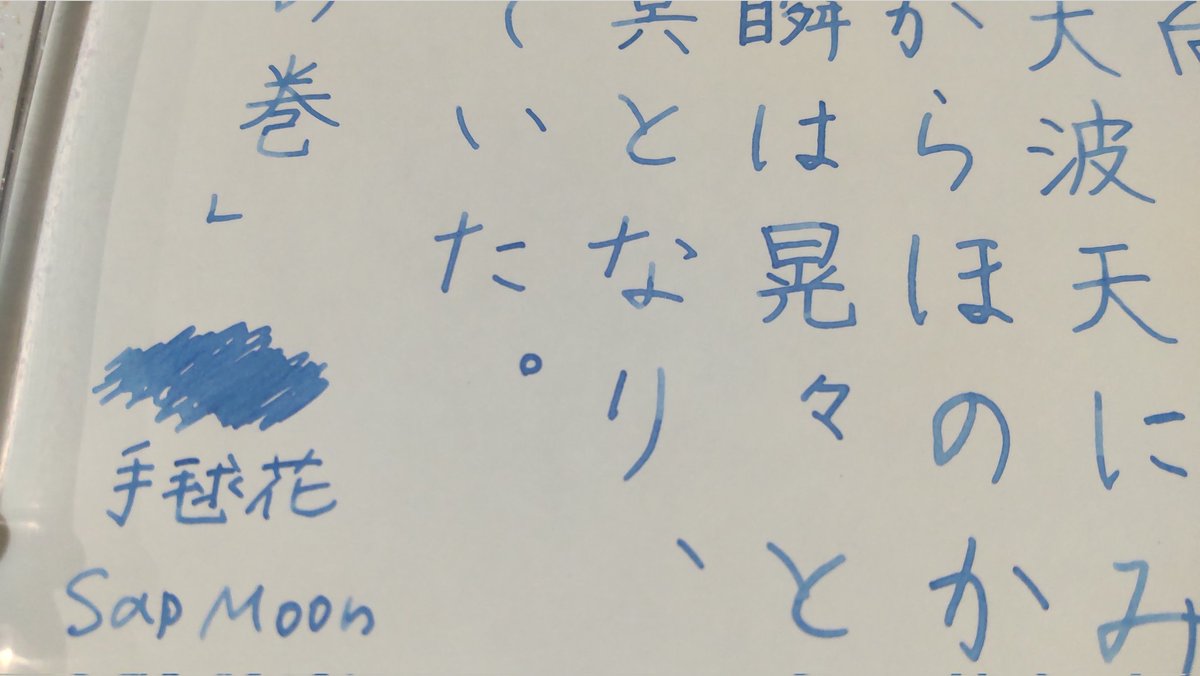 大波天にみ
からほのか
瞬は晃々と
となり、
いた。
の巻」
手毬花
Sap Moon